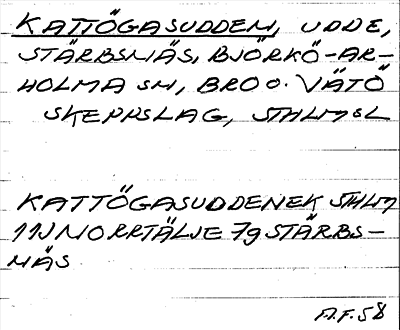 KATTÖGASUDDEN, UDDE,
STÄRBSNÄS, BJÖRKÖ-AR-
HOLMA SN, BRO O. VÄTÖ
SKEPPSLAG, STHLMSL
KATTÖGASUDDENEK STHLM
11J NORRTÄLJE 7g STÄRBS-
NÄS
A.F. 58